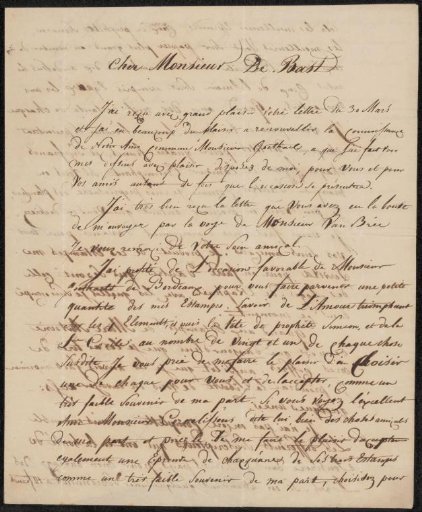 Cher Monsieur De Bast
J'ai reçu avec grand plaisir votre lettre du 30 Mars
et j'ai eu beaucoup du plaisir a renouveller la Connoissance
de Notre Ami commun Monsieur a que j'ai fait voir
mes avec plaisir de moi, pour Vous et pour
Vos amis autant de fois que l'occasion se presentera.
J'ai très bien reçu la lettre que Vous avez eu la bonté
de m'envoyer par la voye de Monsieur Van Brée
Je vous remercie de Votre soin amical.
J'ai profité de l'occasion favorable de Monsieur
de Bordeaux pour vous faire parvenir une petite
quantité des mes Estampes savoir de L'Amour triomphant
les Elements, et puis la Tête de prophète Simeon, et de la
au nombre de Vingt et un de chaque chose
susdite. Je vous prie de me faire le plaisir d'en Choisir
une de chaque pour Vous et de l'accepter comme un
très faible Souvenir de ma part. Si vous voyez l'excellent
Ami Monsieur Cornelissen dite lui bien des choses amicales
de ma part et priez le de me faire le plaisir d'accepter
egalement une épreuve de chaqu'une de ses Estampes
comme un très faible Souvenir de ma part, choisissez pour